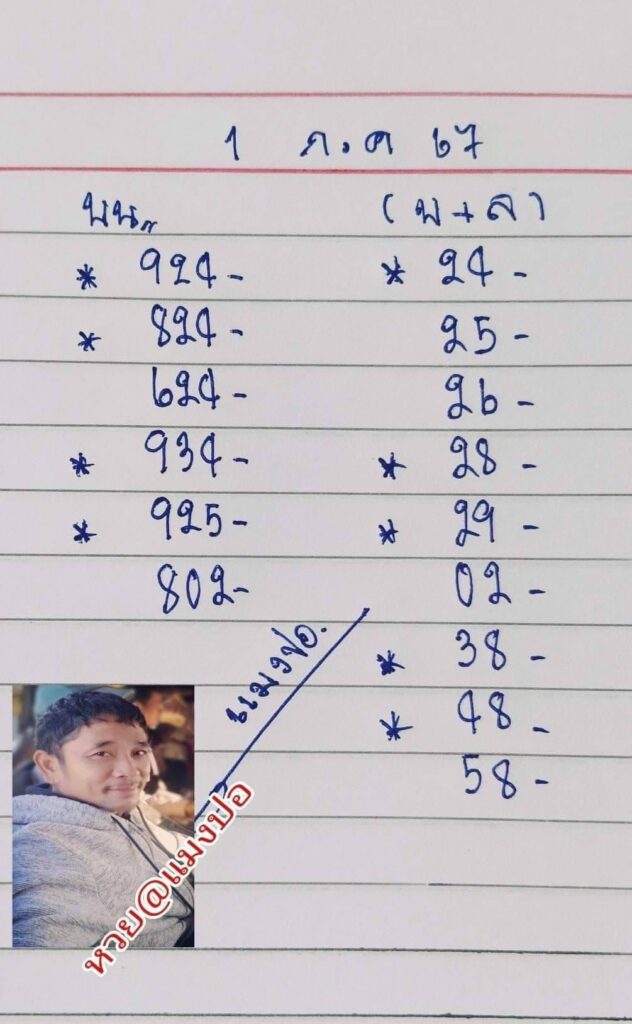 1 ก.ค 67
บน" (บ+ล)
* 924- * 24 -
* 824- 25 -
624- 26 -
* 934- * 28 -
* 925- * 29 -
802- 02 -
* 38 -
* 48 -
58 -
แมงปอ.
หวย@แมงปอ